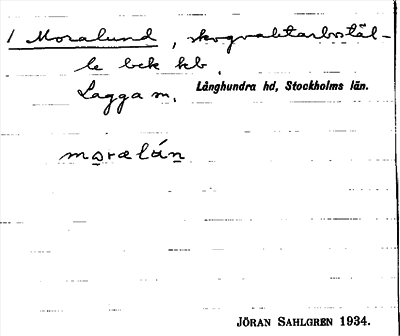 1 Moralund, skogvaktarbostäl-
le bek kb
Lagga sn. Långhundra hd, Stockholms län.
moralún
JÖRAN SAHLGREN 1934.